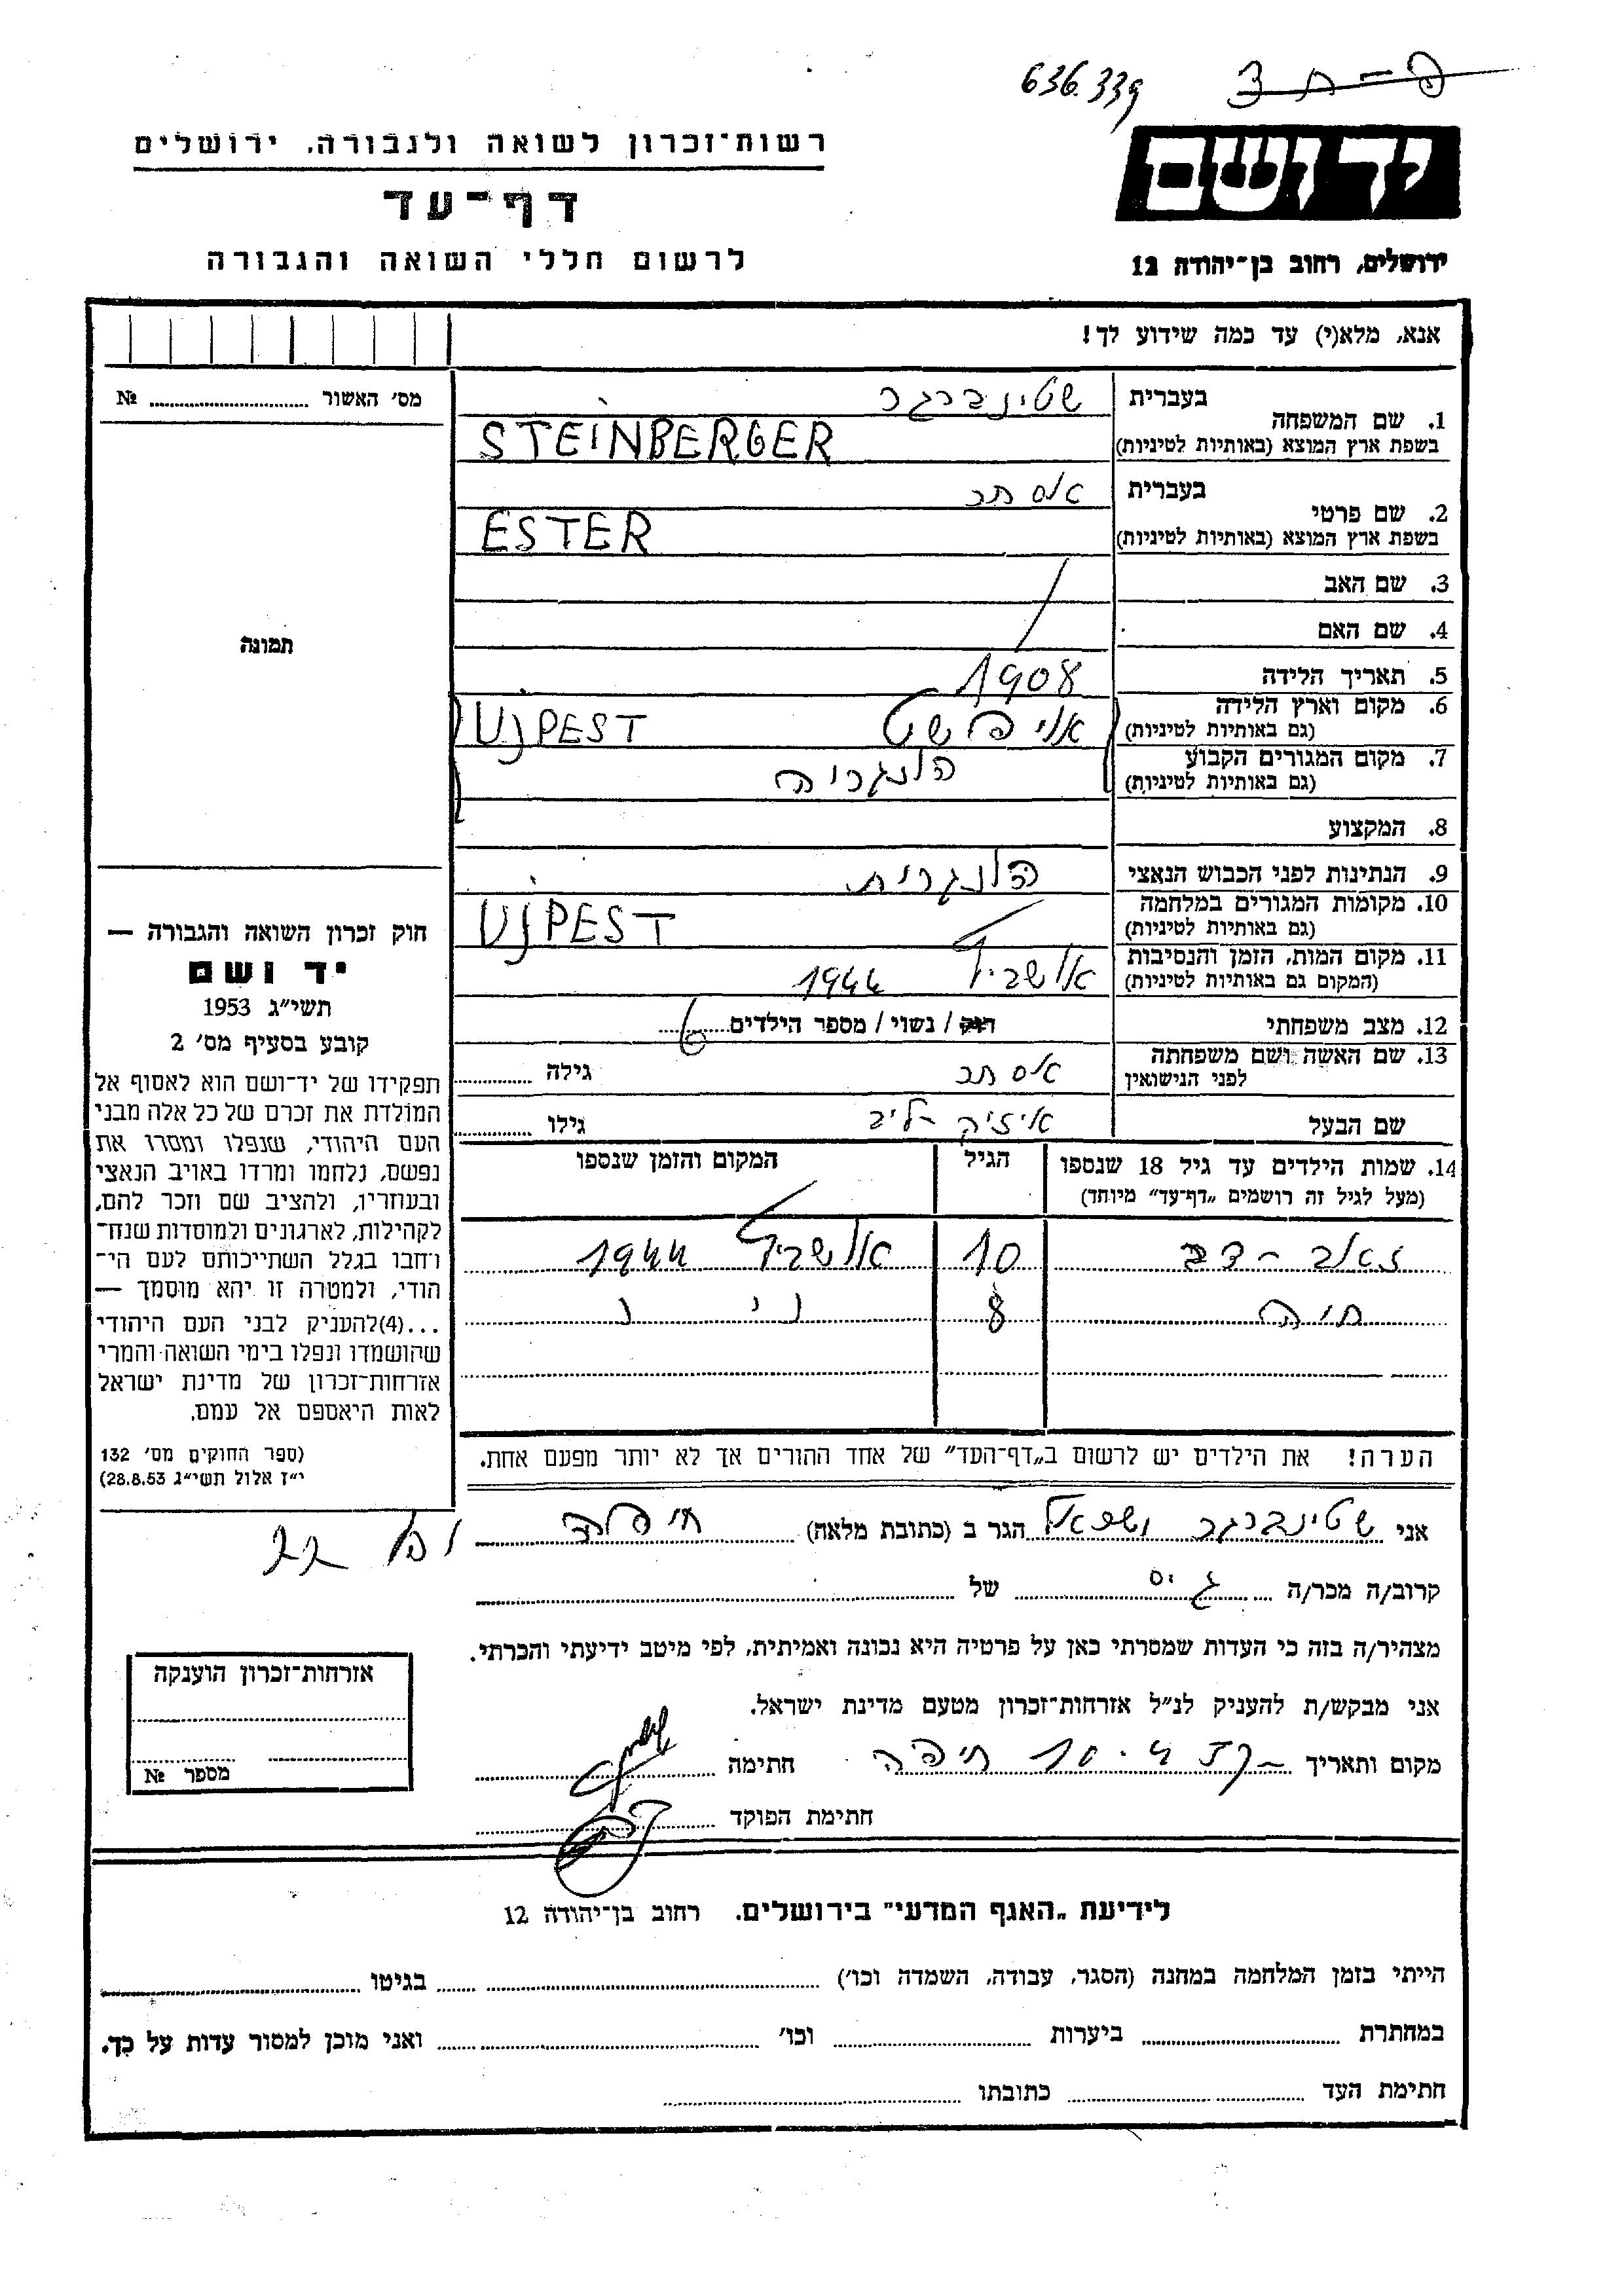 636.339
יד ושם
רשות־זכרון לשואה ולגבורה, ירושלים
דף־עד
לרשום חללי השואה והגבורה
ירושלים, רחוב בן־יהודה 12
אנא, מלא(י) עד כמה שידוע לך!
מס׳ האשור ........ №
תמונה
1. שם המשפחה
בעברית שטינברגר
בשפת ארץ המוצא (באותיות לטיניות) STEINBERGER
2. שם פרטי
בעברית אסתר
בשפת ארץ המוצא (באותיות לטיניות) ESTER
3. שם האב
4. שם האם
5. תאריך הלידה 1908
6. מקום וארץ הלידה
(גם באותיות לטיניות) אוי פשט UJPEST
7. מקום המגורים הקבוע
(גם באותיות לטיניות) הונגריה
8. המקצוע
9. הנתינות לפני הכבוש הנאצי הונגרית
10. מקומות המגורים במלחמה
(גם באותיות לטיניות) UJPEST
11. מקום המות, הזמן והנסיבות
(המקום גם באותיות לטיניות) אושביץ 1944
12. מצב משפחתי רווק / נשוי / מספר הילדים 6
13. שם האשה ושם משפחתה
לפני הנישואין אסתר גילה ........
שם הבעל גילו ........
14. שמות הילדים עד גיל 18 שנספו
(מעל לגיל זה רושמים „דף־עד״ מיוחד)
הגיל
המקום והזמן שנספו
זאב - 10 אושביץ 1944
חיה 8 " "
הערה! את הילדים יש לרשום ב„דף־העד״ של אחד ההורים אך לא יותר מפעם אחת.
חוק זכרון השואה והגבורה —
יד ושם
תשי״ג 1953
קובע בסעיף מס׳ 2
תפקידו של יד־ושם הוא לאסוף אל
המולדת את זכרם של כל אלה מבני
העם היהודי, שנפלו ומסרו את
נפשם, נלחמו ומרדו באויב הנאצי
ובעוזריו, ולהציב שם וזכר להם,
לקהילות, לארגונים ולמוסדות שנח־
רחבו בגלל השתייכותם לעם הי־
הודי, ולמטרה זו יהא מוסמך —
...(4)להעניק לבני העם היהודי
שהושמדו ונפלו בימי השואה והמרי
אזרחות־זכרון של מדינת ישראל
לאות היאספם אל עמם.
(ספר החוקים מס׳ 132
י״ז אלול תשי״ג 28.8.53)
אני שטינברגר הגר ב (כתובת מלאה) חיפה
קרוב/ה מכר/ה גיס של
מצהיר/ה בזה כי העדות שמסרתי כאן על פרטיה היא נכונה ואמיתית, לפי מיטב ידיעתי והכרתי.
אני מבקש/ת להעניק לנ״ל אזרחות־זכרון מטעם מדינת ישראל.
מקום ותאריך חיפה 10.4 חתימה
חתימת הפוקד
אזרחות־זכרון הוענקה
מספר №
לידיעת „האגף המדעי״ בירושלים. רחוב בן־יהודה 12
הייתי בזמן המלחמה במחנה (הסגר, עבודה, השמדה וכו׳) ........ בגיטו ........
במחתרת ........ ביערות ........ וכו׳ ........ ואני מוכן למסור עדות על כך.
חתימת העד ........ כתובתו ........